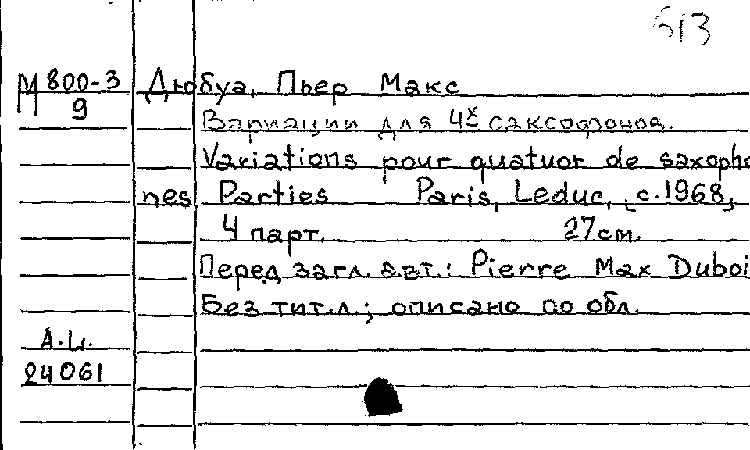 613
М 800-3 Дюбуа, Пьер Макс
9
Вариации для 4х саксофонов.
Variations pour quatuor de saxopho
nes Parties Paris, Leduc, c.1968,
4 парт. 27см.
Перед загл. авт.: Pierre Max Duboi
Без тит.л.; описано по обл.
24061